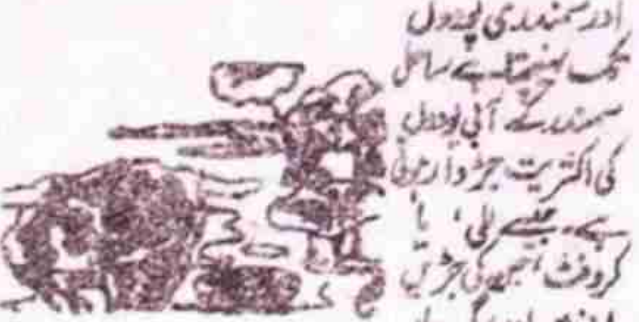 اور سمندری پودوں
تک پہنچتا ہے ساحل
سمندر کے آبی پودوں
کی اکثریت جڑ دار ہوتی
ہے۔ جیسے للی، یا
کروفٹ، جن کی جڑیں